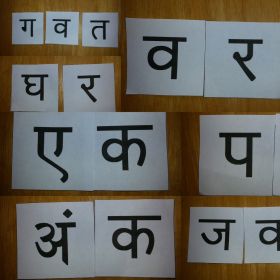 ग व त
व र
घ र
ए क
प
अं क
ज